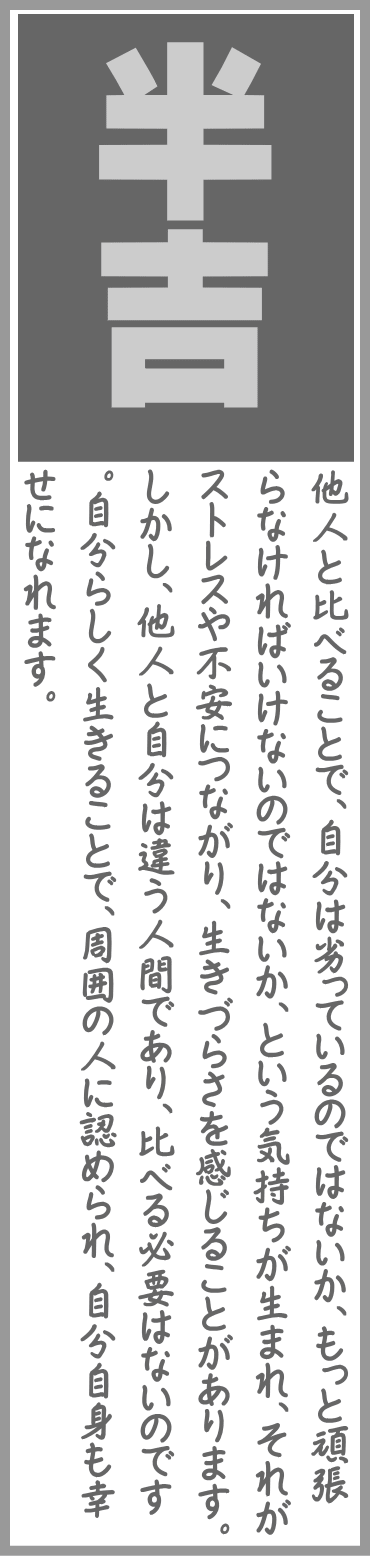 半吉
他人と比べることで、自分は劣っているのではないか、もっと頑張
らなければいけないのではないか、という気持ちが生まれ、それが
ストレスや不安につながり、生きづらさを感じることがあります。
しかし、他人と自分は違う人間であり、比べる必要はないのです
。自分らしく生きることで、周囲の人に認められ、自分自身も幸
せになれます。